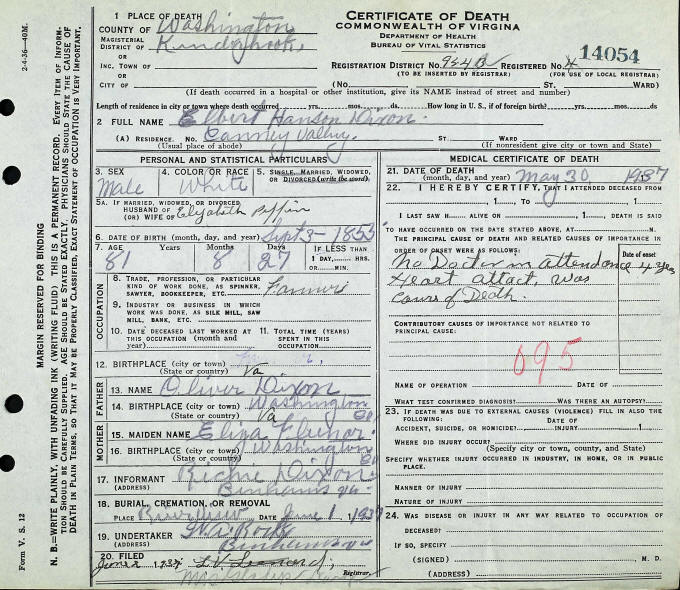 2-4-36—40M.
MARGIN RESERVED FOR BINDING
N. B.—WRITE PLAINLY, WITH UNFADING INK (WRITING FLUID) THIS IS A PERMANENT RECORD. EVERY ITEM OF INFORMATION SHOULD BE CAREFULLY SUPPLIED. AGE SHOULD BE STATED EXACTLY. PHYSICIANS SHOULD STATE THE CAUSE OF DEATH IN PLAIN TERMS, SO THAT IT MAY BE PROPERLY CLASSIFIED, EXACT STATEMENT OF OCCUPATION IS VERY IMPORTANT.
Form V. S. 12
1 PLACE OF DEATH
COUNTY OF Washington
MAGISTERIAL DISTRICT OF
OR
INC. TOWN OF
OR
CITY OF
CERTIFICATE OF DEATH
COMMONWEALTH OF VIRGINIA
DEPARTMENT OF HEALTH
BUREAU OF VITAL STATISTICS
14054
REGISTRATION DISTRICT NO. 954B REGISTERED NO.
(TO BE INSERTED BY REGISTRAR) (FOR USE OF LOCAL REGISTRAR)
(No. ST. WARD)
(If death occurred in a hospital or other institution, give its NAME instead of street and number)
Length of residence in city or town where death occurred yrs. mos. ds. How long in U. S., if of foreign birth? yrs. mos. ds
2 FULL NAME Elbert Hanson Dixon.
(A) RESIDENCE. No. Valley. ST. WARD
(Usual place of abode) (If nonresident give city or town and State)
PERSONAL AND STATISTICAL PARTICULARS
3. SEX Male
4. COLOR OR RACE White
5. SINGLE, MARRIED, WIDOWED, OR DIVORCED (write the word)
5A. IF MARRIED, WIDOWED, OR DIVORCED
HUSBAND OF
(OR) WIFE OF Elizabeth
6. DATE OF BIRTH (month, day, and year) Sept 3- 1855
7. AGE Years Months Days IF LESS THAN 1
81 8 27 HRS. OR MIN.
OCCUPATION
8. TRADE, PROFESSION, OR PARTICULAR KIND OF WORK DONE, AS SPINNER, SAWYER, BOOKKEEPER, ETC.
9. INDUSTRY OR BUSINESS IN WHICH WORK WAS DONE, AS SILK MILL, SAW MILL, BANK, ETC.
10. DATE DECEASED LAST WORKED AT THIS OCCUPATION (month and year)
11. TOTAL TIME (YEARS) SPENT IN THIS OCCUPATION
12. BIRTHPLACE (city or town)
(State or country) Va
FATHER
13. NAME Oliver Dixon
14. BIRTHPLACE (city or town) Washington
(State or country) Va Co.
MOTHER
15. MAIDEN NAME Eliza
16. BIRTHPLACE (city or town) Washington
(State or country)
17. INFORMANT Dixon
(ADDRESS) Benhams Va.
18. BURIAL, CREMATION, OR REMOVAL
PLACE DATE June 1, 1937
19. UNDERTAKER
(ADDRESS)
20. FILED June 2 1937 L.V. Leonard, Registrar.
MEDICAL CERTIFICATE OF DEATH
21. DATE OF DEATH (month, day, and year) May 30, 1937
22. I HEREBY CERTIFY, THAT I ATTENDED DECEASED FROM
, 1 , TO , 1
I LAST SAW H ALIVE ON , 1 , DEATH IS SAID
TO HAVE OCCURRED ON THE DATE STATED ABOVE, AT M.
THE PRINCIPAL CAUSE OF DEATH AND RELATED CAUSES OF IMPORTANCE IN ORDER OF ONSET WERE AS FOLLOWS:
Date of onset
No Doctor in attendance 4 yrs
Heart attact, was
Cause of Death.
CONTRIBUTORY CAUSES OF IMPORTANCE NOT RELATED TO PRINCIPAL CAUSE:
095
NAME OF OPERATION DATE OF
WHAT TEST CONFIRMED DIAGNOSIS? WAS THERE AN AUTOPSY?
23. IF DEATH WAS DUE TO EXTERNAL CAUSES (VIOLENCE) FILL IN ALSO THE FOLLOWING:
ACCIDENT, SUICIDE, OR HOMICIDE? DATE OF INJURY 1
WHERE DID INJURY OCCUR?
(Specify city or town, county, and State)
SPECIFY WHETHER INJURY OCCURRED IN INDUSTRY, IN HOME, OR IN PUBLIC PLACE.
MANNER OF INJURY
NATURE OF INJURY
24. WAS DISEASE OR INJURY IN ANY WAY RELATED TO OCCUPATION OF DECEASED?
IF SO, SPECIFY
(SIGNED) M. D.
(ADDRESS)